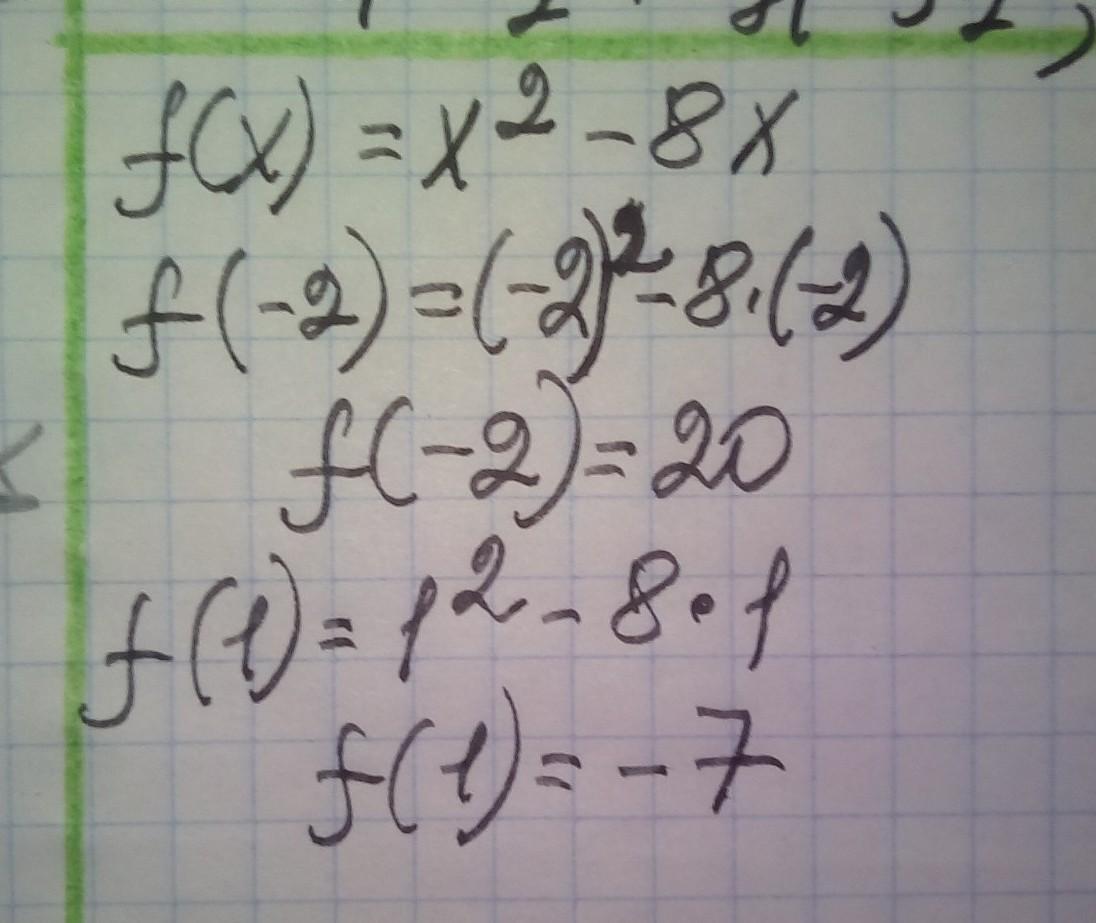 f(x) = x² - 8x
f(-2) = (-2)² - 8·(-2)
f(-2) = 20
f(1) = 1² - 8·1
f(1) = -7